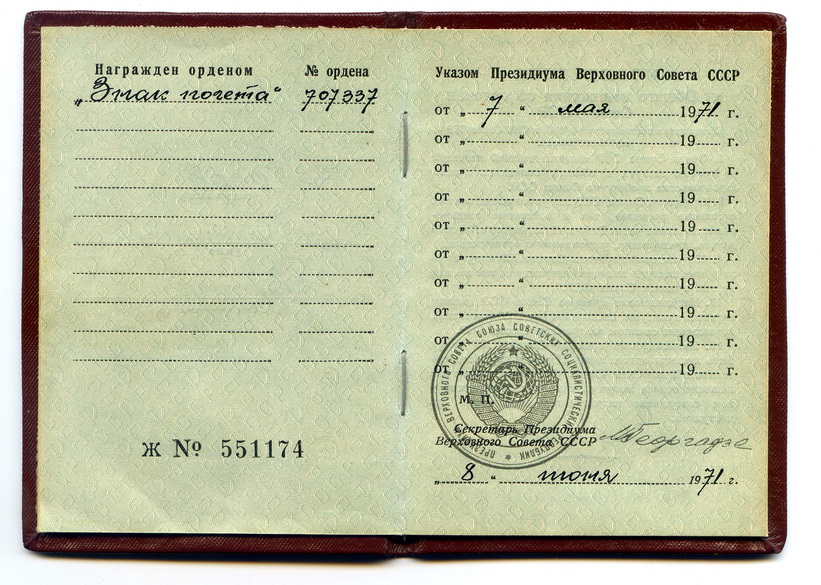 Награжден орденом № ордена
„Знак почета“ 707337
Ж № 551174
Указом Президиума Верховного Совета СССР
от „ 7 “ мая 1971 г.
от „ “ 19 г.
от „ “ 19 г.
от „ “ 19 г.
от „ “ 19 г.
от „ “ 19 г.
от „ “ 19 г.
от „ “ 19 г.
от „ “ 19 г.
от „ “ 19 г.
ПРЕЗИДИУМ ВЕРХОВНОГО СОВЕТА СОЮЗА СОВЕТСКИХ СОЦИАЛИСТИЧЕСКИХ РЕСПУБЛИК
М. П.
Секретарь Президиума
Верховного Совета СССР МГеоргадзе
„ 8 “ июня 1971 г.